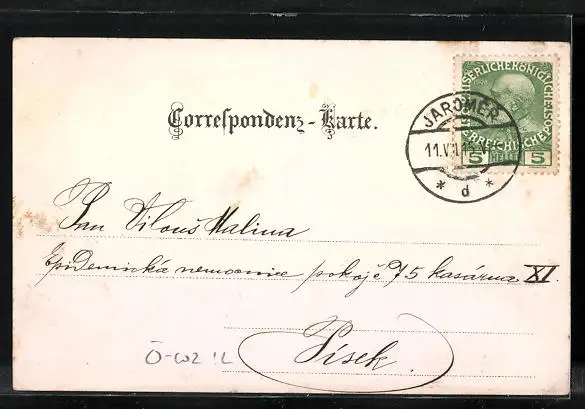 Correspondenz-Karte.
KAISERLICHE KÖNIGLICHE ÖSTERREICHISCHE POST
5 HELLER 5
JAROMĚŘ
11.VII.15
* d *
Pan Vilouš Malina
Epidemická nemocnice pokoj č 75 kasárna XI.
Písek.
Ö-W2